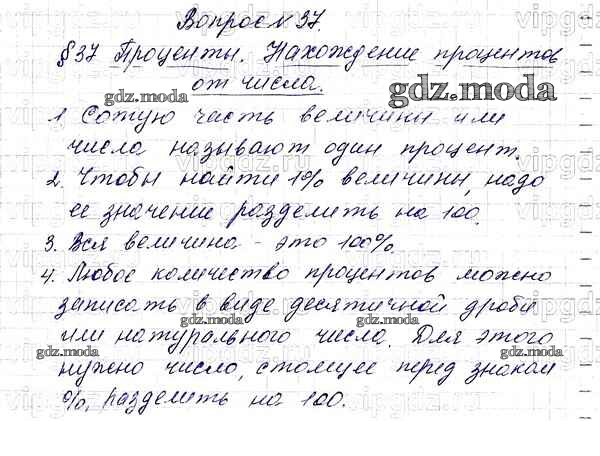 Вопрос № 37.
§ 37 Проценты. Нахождение процентов
от числа.
1 Сотую часть величины или
числа называют один процент.
2. Чтобы найти 1% величины, надо
ее значение разделить на 100.
3. Вся величина - это 100%
4. Любое количество процентов можно
записать в виде десятичной дроби
или натурального числа. Для этого
нужно число, стоящее перед знаком
%, разделить на 100.
gdz.moda
gdz.moda
gdz.moda
gdz.moda
gdz.moda
gdz.moda
gdz.moda
gdz.moda
vipgdz.ru